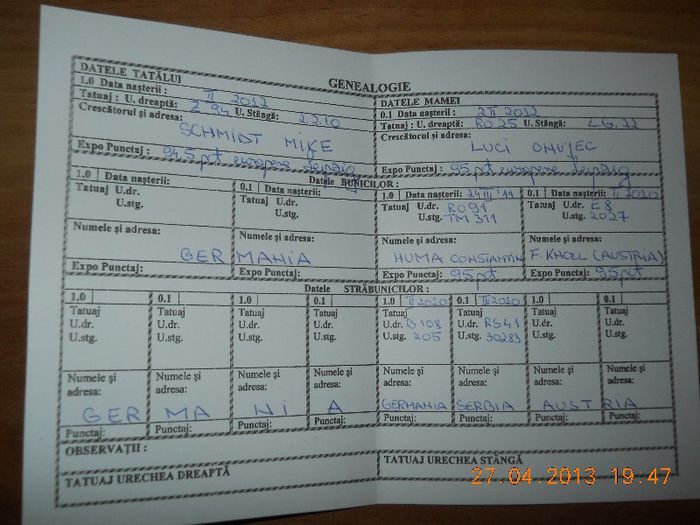 GENEALOGIE
DATELE TATĂLUI
1.0 Data nașterii : II 2012
Tatuaj : U. dreaptă: Z 94 U. Stângă: 2.2.10
Crescătorul și adresa:
SCHMIDT MIKE
Expo Punctaj : 94,5 pt europene Leipzig
DATELE MAMEI
0.1 Data nașterii : 2 II 2012
Tatuaj : U. dreaptă: RO 25 U. Stângă: LG.22
Crescătorul și adresa:
LUCI ONUȚEC
Expo Punctaj : 95 pt europene Leipzig
Datele BUNICILOR :
1.0 Data nașterii: 0.1 Data nașterii: 1.0 Data nașterii: 24 III '11 0.1 Data nașterii: II 2010
Tatuaj U.dr. Tatuaj U.dr. Tatuaj U.dr. RO91 Tatuaj U.dr. E8
U.stg. U.stg. U.stg. TM 311 U.stg. 2027
Numele și adresa: Numele și adresa: Numele și adresa: Numele și adresa:
GERMANIA HUMA CONSTANTIN F. KNOLL (AUSTRIA)
Expo Punctaj: Expo Punctaj: Expo Punctaj: 95pt Expo Punctaj: 95pt
Datele STRĂBUNICILOR :
1.0 0.1 1.0 0.1 1.0 II 2020 0.1 II 2010 1.0 0.1
Tatuaj Tatuaj Tatuaj Tatuaj Tatuaj Tatuaj Tatuaj Tatuaj
U.dr. U.dr. U.dr. U.dr. U.dr. B108 U.dr. RS41 U.dr. U.dr.
U.stg. U.stg. U.stg. U.stg. U.stg. 205 U.stg. 30283 U.stg. U.stg.
Numele și Numele și Numele și Numele și Numele și Numele și Numele și Numele și
adresa: adresa: adresa: adresa: adresa: adresa: adresa: adresa:
GERMANIA GERMANIA SERBIA AUSTRIA
Punctaj: Punctaj: Punctaj: Punctaj: Punctaj: Punctaj: Punctaj: Punctaj:
OBSERVAȚII :
TATUAJ URECHEA DREAPTĂ TATUAJ URECHEA STÂNGĂ
27.04.2013 19:47